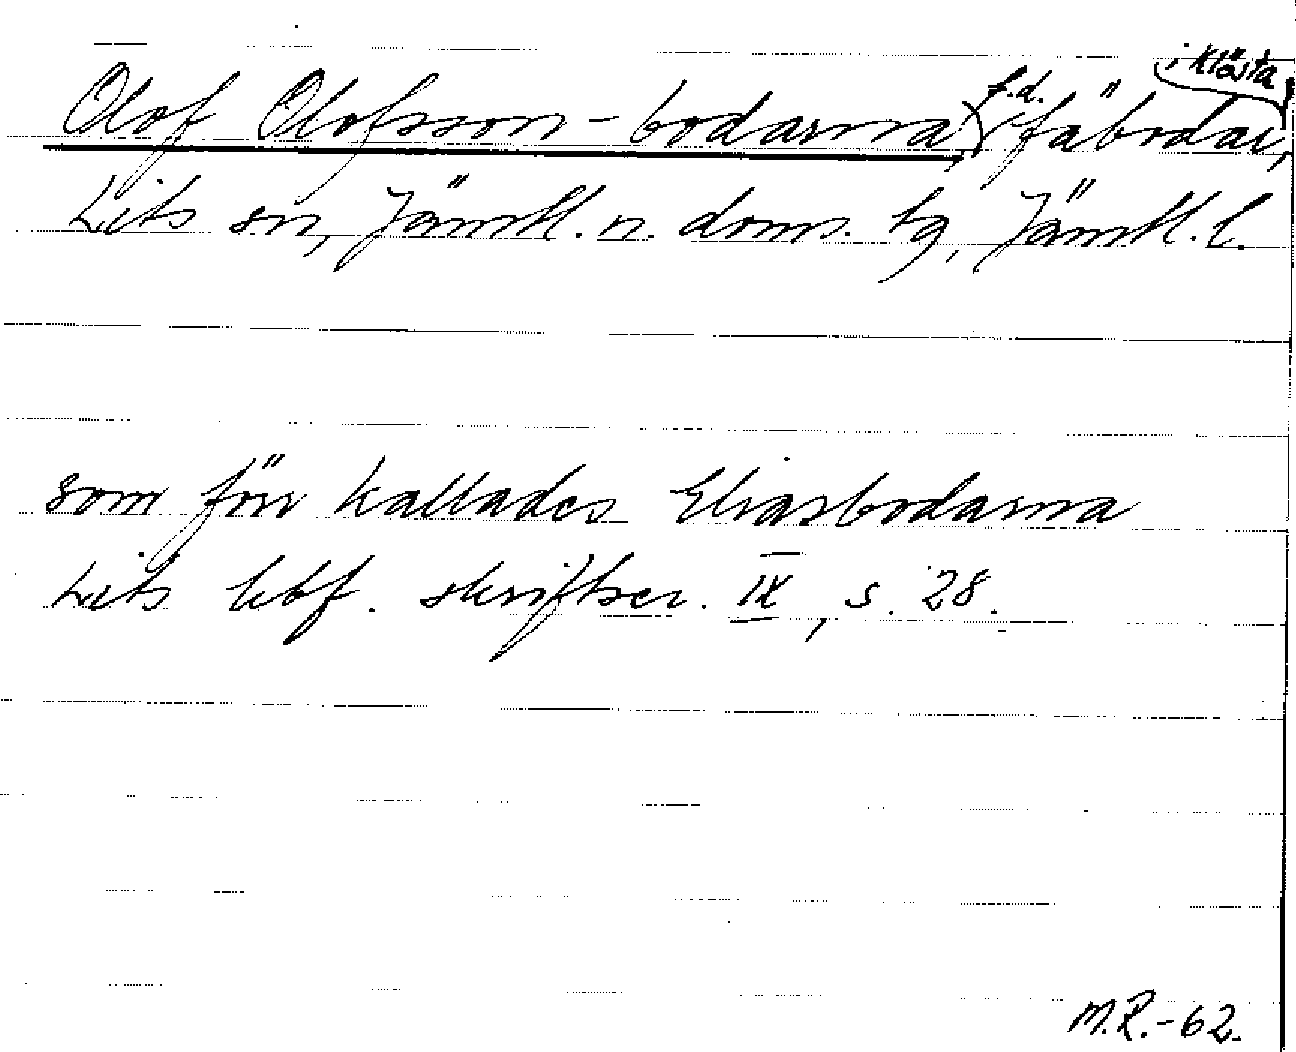 Olof Olofsson-bodarna, f.d. fäbodar i Klösta,
Lits sn, Jämtl. n. doms. tg, Jämtl. l.
som förr kallades Eliasbodarna
Lits hbf. skriftser. IX, s. 28.
M.R.-62.